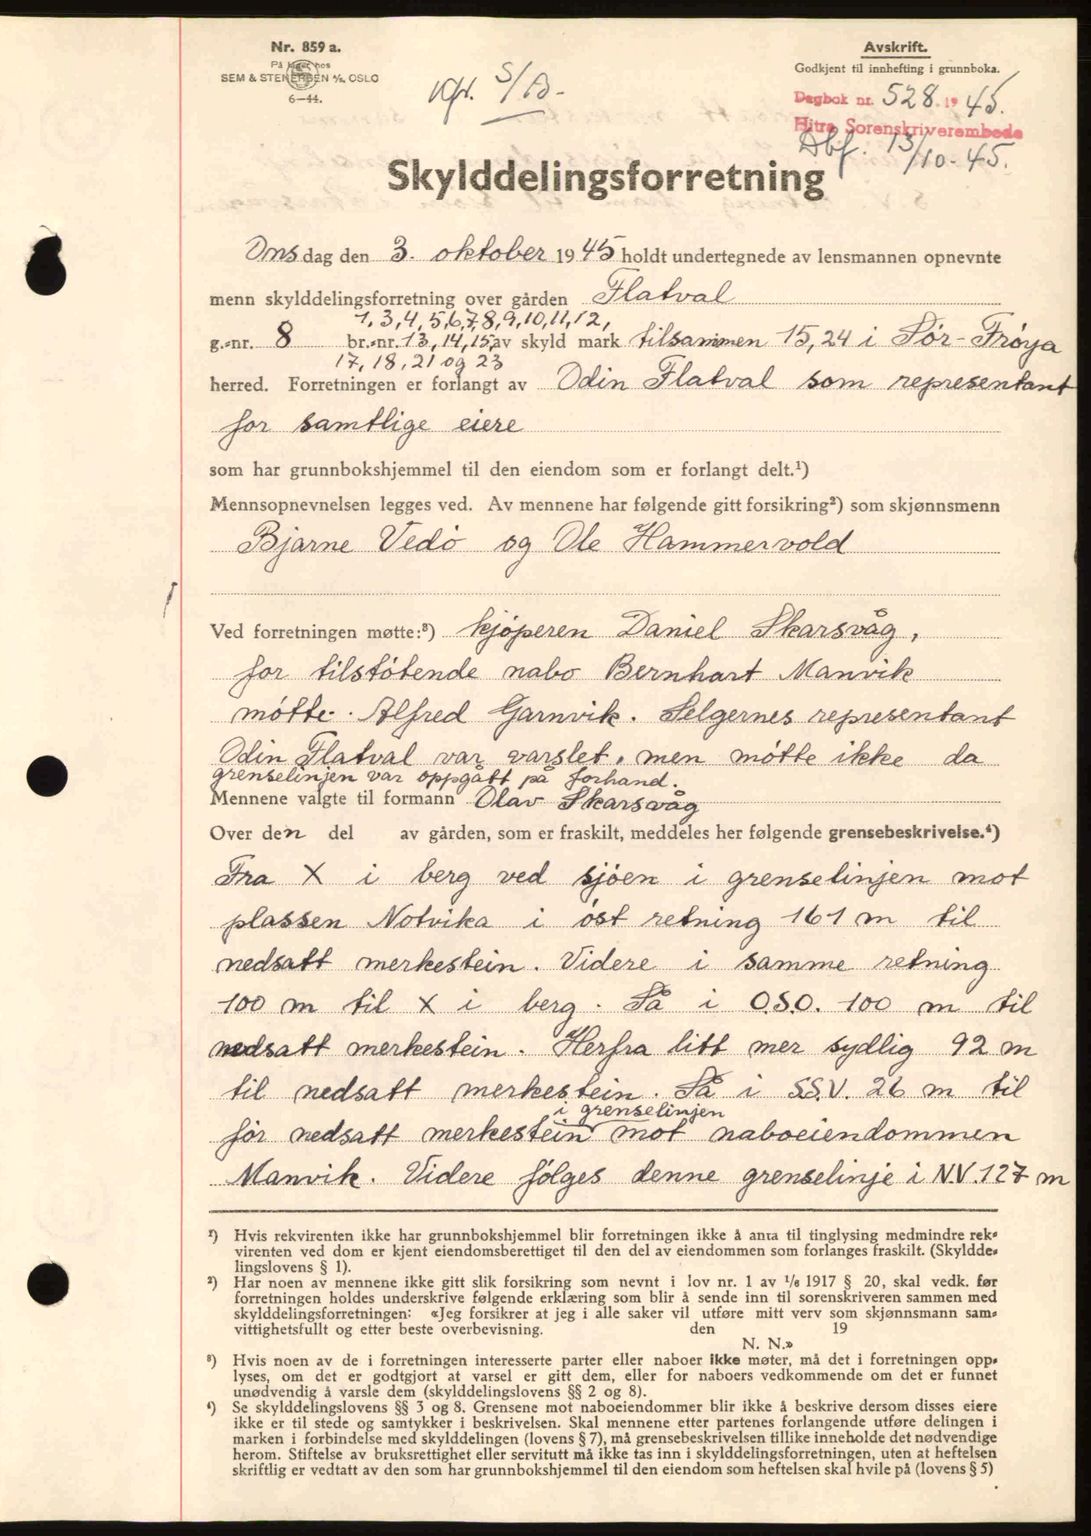 Nr. 859 a.
På lager hos
SEM & STENERSEN A/S, OSLO
6—44.
Avskrift.
Godkjent til innhefting i grunnboka.
Dagbok nr. 528. 1945.
Hitra Sorenskriverembede
Dbf. 13/10-45.
Skylddelingsforretning
Onsdag den 3. oktober 1945 holdt undertegnede av lensmannen opnevnte
menn skylddelingsforretning over gården Flatval
1,3,4,5,6,7,8,9,10,11,12,
g.-nr. 8 br.-nr. 13,14,15, av skyld mark tilsammen 15,24 i Sör-Fröya
17, 18, 21 og 23
herred. Forretningen er forlangt av Odin Flatval som representant
for samtlige eiere
som har grunnbokshjemmel til den eiendom som er forlangt delt.¹)
Mennsopnevnelsen legges ved. Av mennene har følgende gitt forsikring²) som skjønnsmenn
Bjarne Vedö og Ole Hammervold
Ved forretningen møtte:³) kjöperen Daniel Skarsvåg,
for tilstötende nabo Bernhart Manvik
mötte. Alfred Garnvik. Selgernes representant
Odin Flatval var varslet, men mötte ikke da
grenselinjen var oppgått på forhand.
Mennene valgte til formann Olav Skarsvåg
Over den del av gården, som er fraskilt, meddeles her følgende grensebeskrivelse.⁴)
Fra X i berg ved sjöen i grenselinjen mot
plassen Notvika i öst retning 161 m til
nedsatt merkestein. Videre i samme retning
100 m til X i berg. Så i O.S.O. 100 m til
nedsatt merkestein. Herfra litt mer sydlig 92 m
til nedsatt merkestein. Så i S.S.V. 26 m til
i grenselinjen
för nedsatt merkestein mot naboeiendommen
Manvik. Videre fölges denne grenselinje i N.V. 127 m
¹) Hvis rekvirenten ikke har grunnbokshjemmel blir forretningen ikke å anta til tinglysing medmindre rek-
virenten ved dom er kjent eiendomsberettiget til den del av eiendommen som forlanges fraskilt. (Skyldde-
lingslovens § 1).
²) Har noen av mennene ikke gitt slik forsikring som nevnt i lov nr. 1 av 1/6 1917 § 20, skal vedk. før
forretningen holdes underskrive følgende erklæring som blir å sende inn til sorenskriveren sammen med
skylddelingsforretningen: «Jeg forsikrer at jeg i alle saker vil utføre mitt verv som skjønnsmann sam-
vittighetsfullt og etter beste overbevisning. den 19
N. N.»
³) Hvis noen av de i forretningen interesserte parter eller naboer ikke møter, må det i forretningen opp-
lyses, om det er godtgjort at varsel er gitt dem, eller for naboers vedkommende om det er funnet
unødvendig å varsle dem (skylddelingslovens §§ 2 og 8).
⁴) Se skylddelingslovens §§ 3 og 8. Grensene mot naboeiendommer blir ikke å beskrive dersom disses eiere
ikke er til stede og samtykker i beskrivelsen. Skal mennene etter partenes forlangende utføre delingen i
marken i forbindelse med skylddelingen (lovens § 7), må grensebeskrivelsen tillike inneholde det nødvendige
herom. Stiftelse av bruksrettighet eller servitutt må ikke tas inn i skylddelingsforretningen, uten at heftelsen
skriftlig er vedtatt av den som har grunnbokshjemmel til den eiendom som heftelsen skal hvile på (lovens § 5)